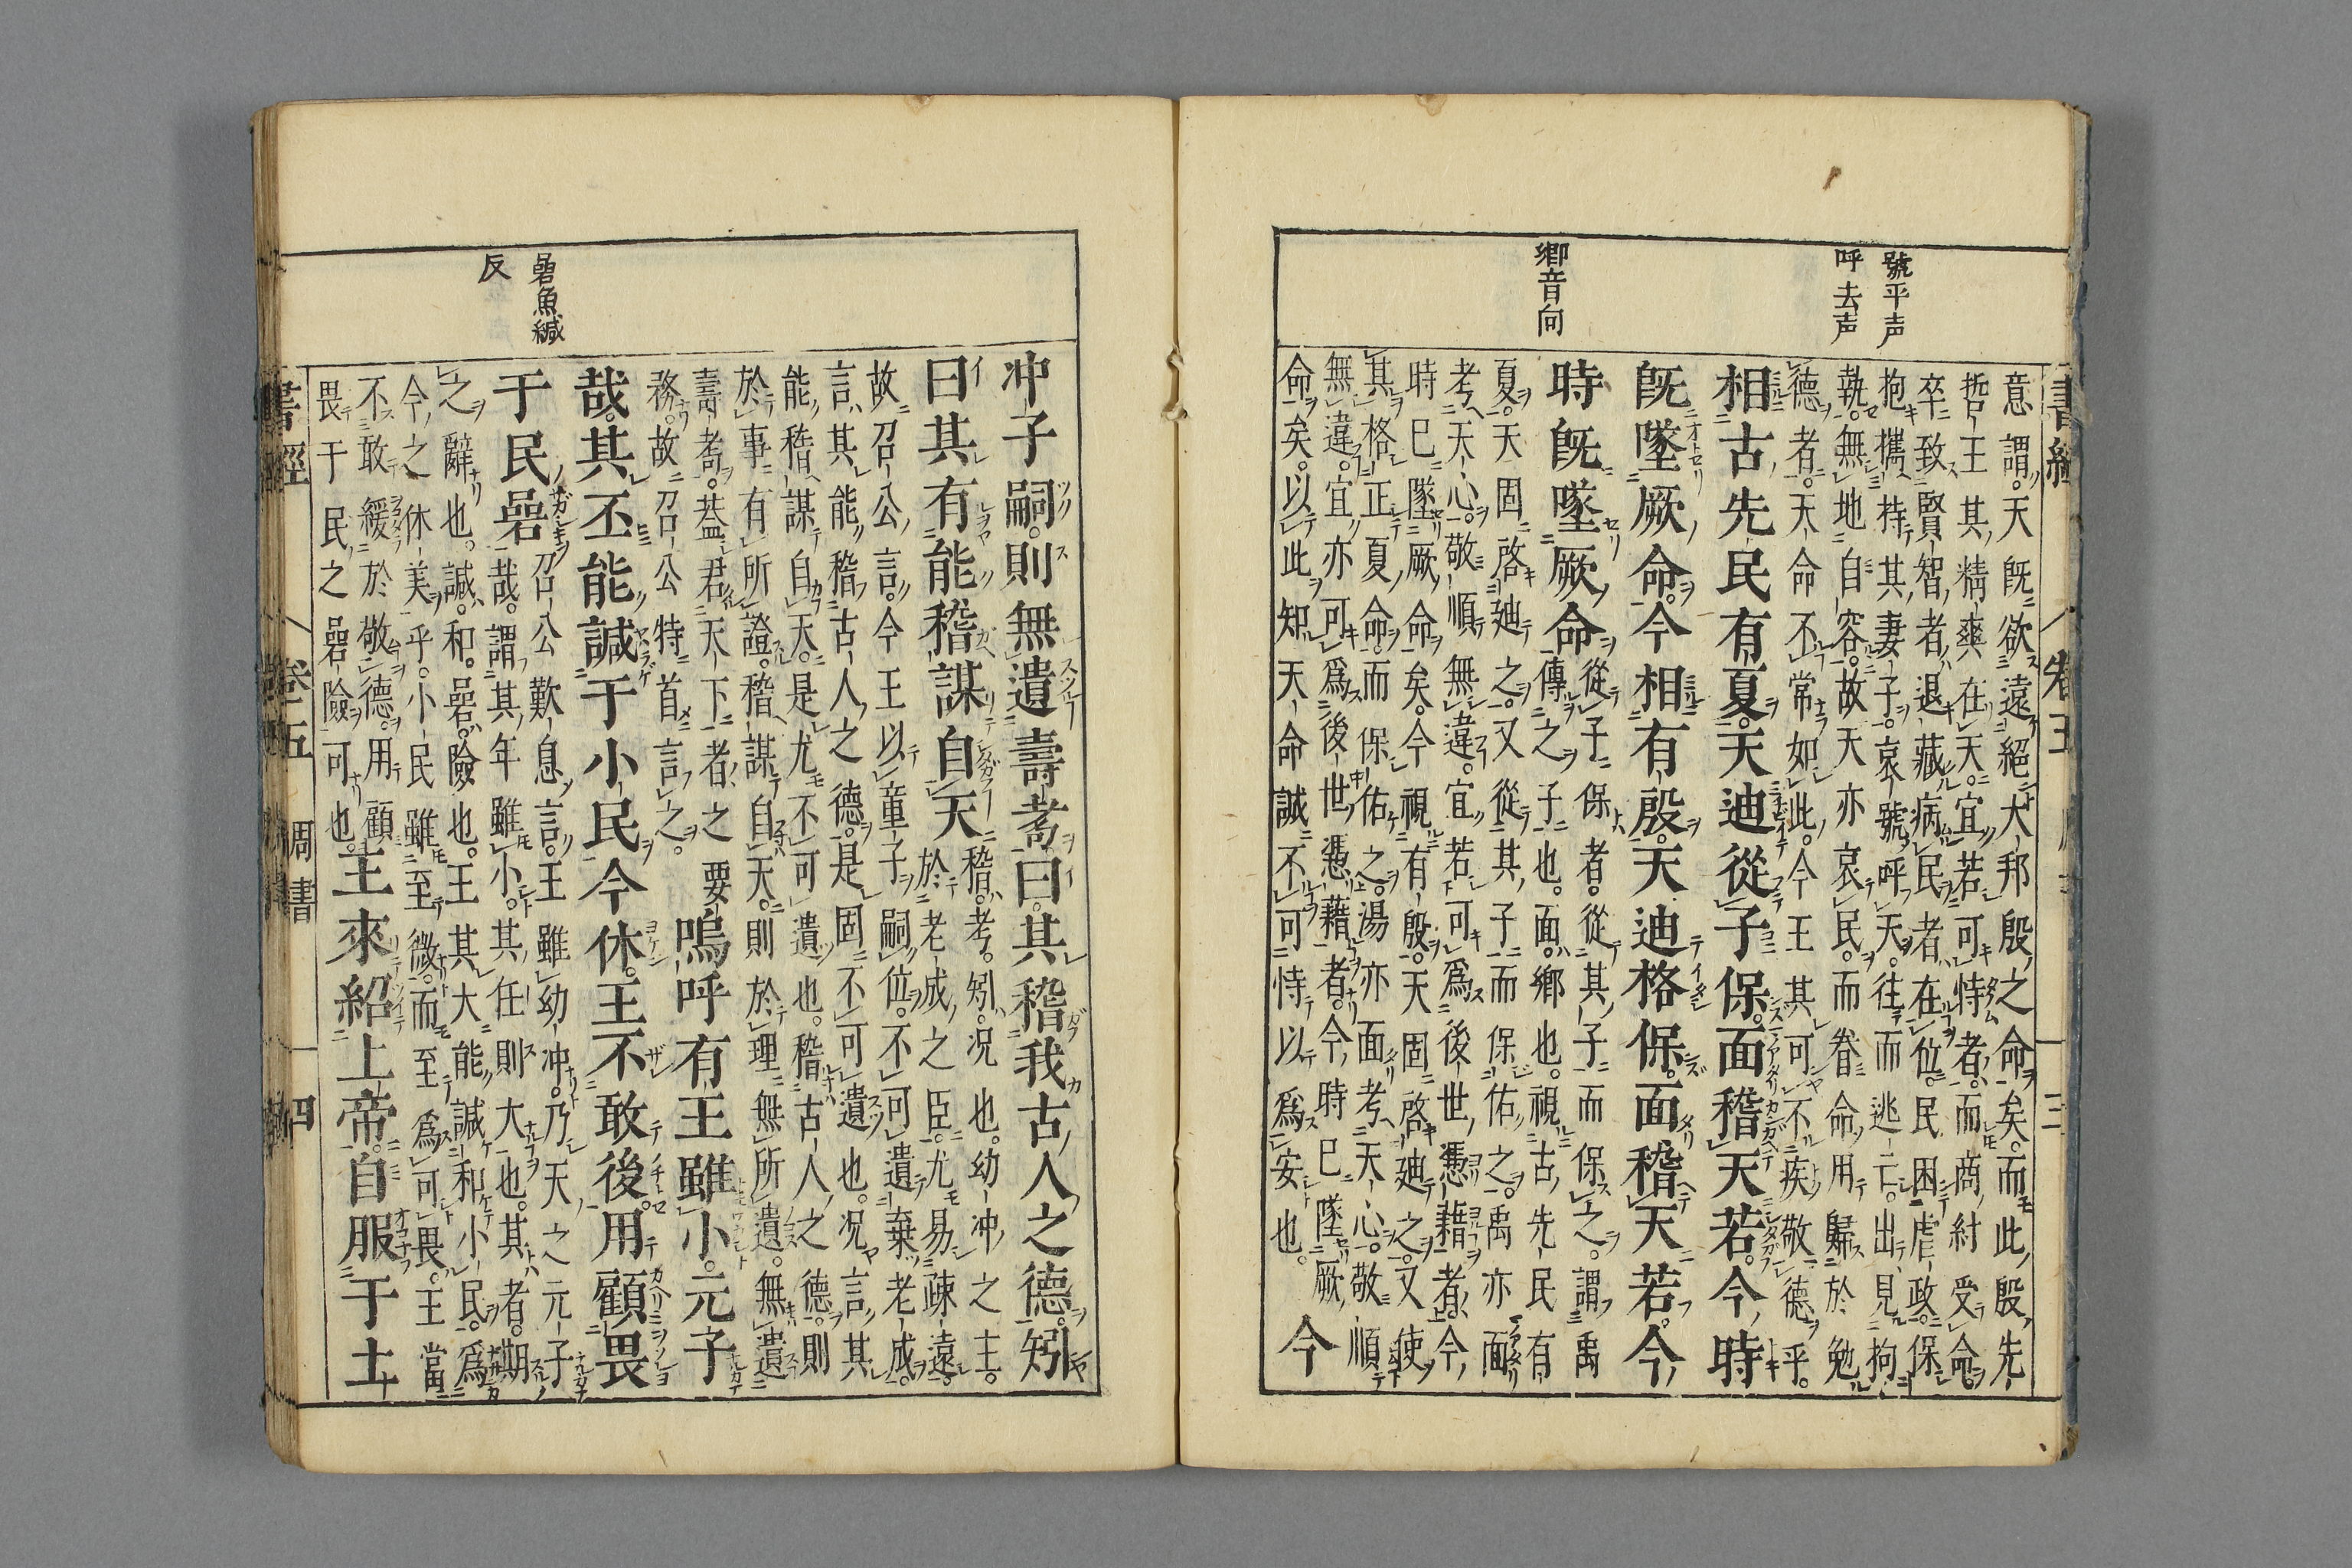 號平声
呼去声
鄉音向
意謂。天既欲遠絕大邦殷之命矣。而此殷先
哲王其精爽在天。宜若可恃者。而商紂受命。
卒致賢智者退藏病民者在位。民困虐政。保
抱攜持其妻子。哀號呼天。往而逃亡。出見拘
執。無地自容。故天亦哀民。而眷命用歸於勉
德者。天命不常如此。今王其可不疾敬德乎。
相古先民有夏。天迪從子保。面稽天若。今時
既墜厥命。今相有殷。天迪格保。面稽天若。今
時既墜厥命
從子保者。從其子而保之。謂禹
傳之子也。面。鄉也。視古先民有
夏。天固啓迪之。又從其子而保佑之。禹亦面
考天心。敬順無違。宜若可爲後世憑藉者。今
時已墜厥命矣。今視有殷。天固啓迪之。又使
其格正夏命。而保佑之。湯亦面考天心。敬順
無違。宜亦可爲後世憑藉者。今時已墜厥
命矣。以此知天命誠不可恃以爲安也。
今
碞魚緘
反
冲子嗣。則無遺壽耇。曰其稽我古人之德。矧
曰其有能稽謀自天
稽。考。矧。况也。幼冲之主。
於老成之臣。尤易疎遠。
故召公言。今王以童子嗣位。不可遺棄老成。
言其能稽古人之德。是固不可遺也。况言其
能稽謀自天。是尤不可遺也。稽古人之德。則
於事有所證。稽謀自天。則於理無所遺。無遺
壽耇。蓋君天下者之要
務。故召公特首言之。
嗚呼有王雖小。元子
哉。其丕能諴于小民。今休。王不敢後。用顧畏
于民碞
召公歎息言。王雖幼冲。乃天之元子
哉。謂其年雖小。其任則大也。其者。期
之辭也。諴。和。碞。險也。王其大能諴和小民。爲
今之休美乎。小民雖至微。而至爲可畏。王當
不敢緩於敬德。用顧
畏于民之碞險可也。
王來紹上帝。自服于土
書經 卷五 周書 四